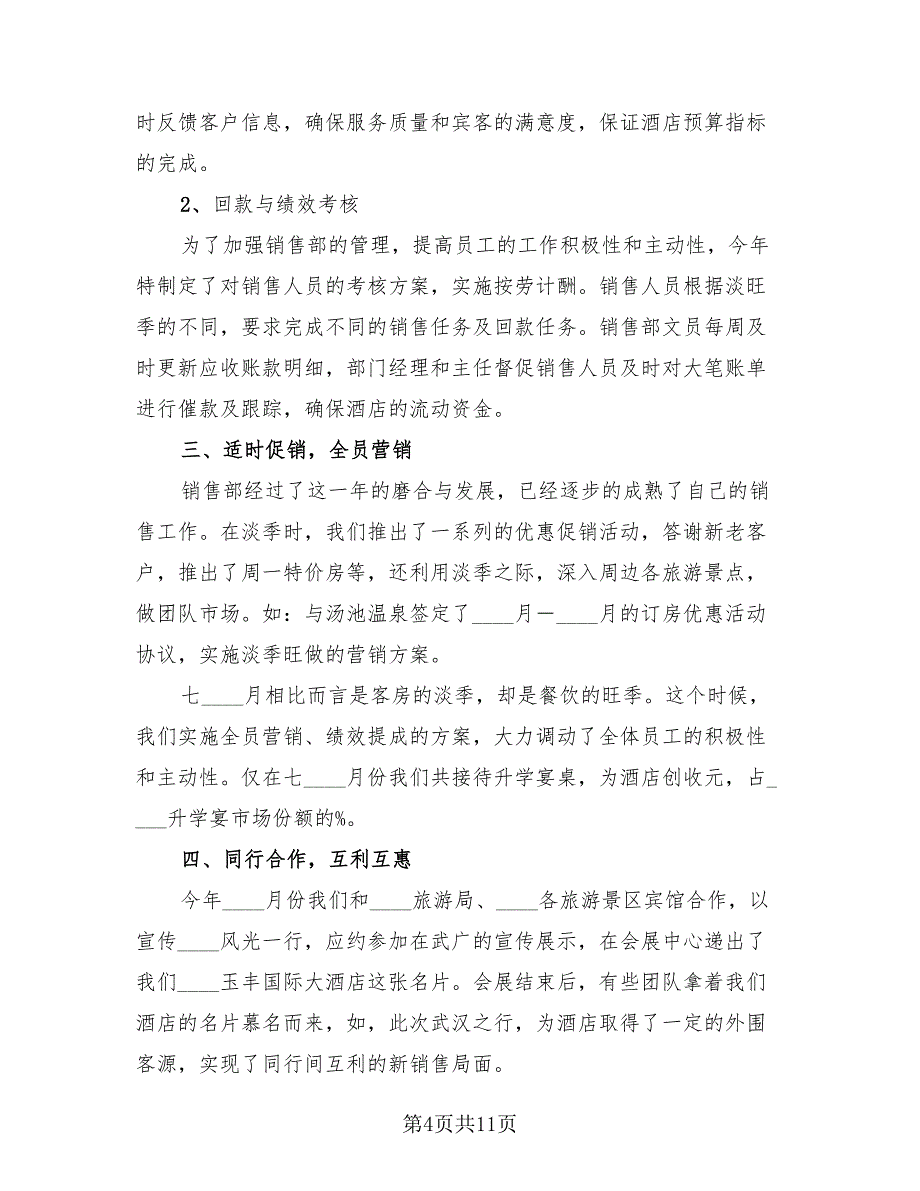 时反馈客户信息，确保服务质量和宾客的满意度，保证酒店预算指标
的完成。
2、回款与绩效考核
为了加强销售部的管理，提高员工的工作积极性和主动性，今年
特制定了对销售人员的考核方案，实施按劳计酬。销售人员根据淡旺
季的不同，要求完成不同的销售任务及回款任务。销售部文员每周及
时更新应收账款明细，部门经理和主任督促销售人员及时对大笔账单
进行催款及跟踪，确保酒店的流动资金。
三、适时促销，全员营销
销售部经过了这一年的磨合与发展，已经逐步的成熟了自己的销
售工作。在淡季时，我们推出了一系列的优惠促销活动，答谢新老客
户，推出了周一特价房等，还利用淡季之际，深入周边各旅游景点，
做团队市场。如：与汤池温泉签定了____月－____月的订房优惠活动
协议，实施淡季旺做的营销方案。
七____月相比而言是客房的淡季，却是餐饮的旺季。这个时候，
我们实施全员营销、绩效提成的方案，大力调动了全体员工的积极性
和主动性。仅在七____月份我们共接待升学宴桌，为酒店创收元，占_
___升学宴市场份额的%。
四、同行合作，互利互惠
今年____月份我们和____旅游局、____各旅游景区宾馆合作，以
宣传____风光一行，应约参加在武广的宣传展示，在会展中心递出了
我们____玉丰国际大酒店这张名片。会展结束后，有些团队拿着我们
酒店的名片慕名而来，如，此次武汉之行，为酒店取得了一定的外围
客源，实现了同行间互利的新销售局面。
第4页共11页